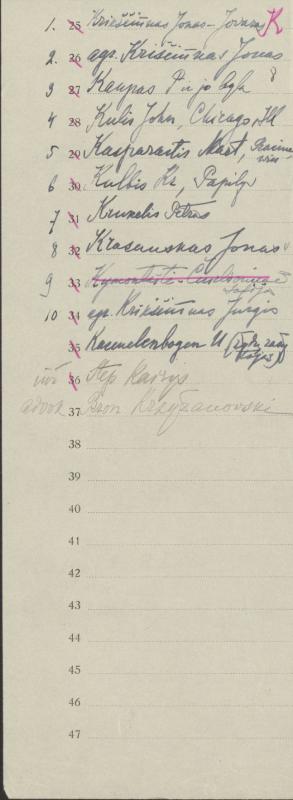 K
1. 25 Kriščiunas Jonas - Jovaras
2. 26 agr. Kriščiunas Jonas
3 27 Kaupas P ir jo byla 8
4 28 Kulis John, Chicago, Ill
5 29 Kasparaitis Mart,
6 30 Kulbis Kr, Papilys
7 31 Krukelis Petras
8 32 Krasauskas Jonas
9 33
10 34 agr. Kriščiunas Jurgis
35 Kacenelenbogen U
36 Step Kairys
advok 37 Bron Krzyżanovski
38
39
40
41
42
43
44
45
46
47